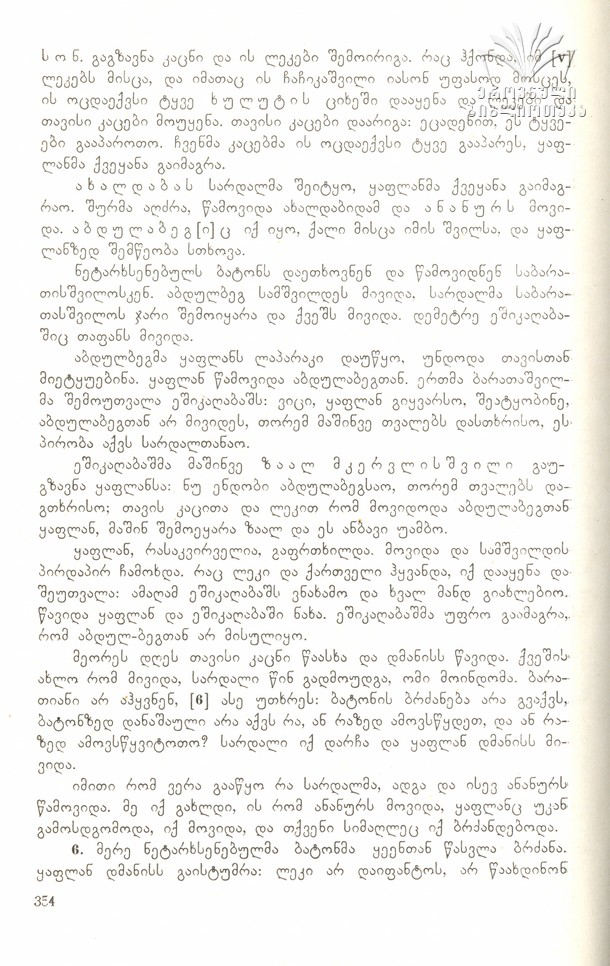 ს ო ნ. გაგზავნა კაცნი და ის ლეკები შემოირიგა. რაც ჰქონდა, იმ [v]
ლეკებს მისცა, და იმათაც ის ჩაჩიკაშვილი იასონ უფასოდ მოსცეს,
ის ოცდაექვსი ტყვე ხ უ ლ უ ტ ი ს ციხეში დააყენა და ლეკები და
თავისი კაცები მოუყენა. თავისი კაცები დაარიგა: ეცადენით, ეს ტყვე-
ები გააპაროთო. ჩვენმა კაცებმა ის ოცდაექვსი ტყვე გააპარეს, ყაფ-
ლანმა ქვეყანა გაიმაგრა.
ა ხ ა ლ დ ა ბ ა ს სარდალმა შეიტყო, ყაფლანმა ქვეყანა გაიმაგ-
რაო. შურმა აღძრა, წამოვიდა ახალდაბიდამ და ა ნ ა ნ უ რ ს მოვი-
და. ა ბ დ უ ლ ა ბ ე გ [ი] ც იქ იყო, ქალი მისცა იმის შვილსა, და ყაფ-
ლანზედ შემწეობა სთხოვა.
ნეტარხსენებულს ბატონს დაეთხოვნენ და წამოვიდნენ საბარა-
თისშვილოსკენ. აბდულბეგ სამშვილდეს მივიდა, სარდალმა საბარა-
თასშვილოს ჯარი შემოიყარა და ქვეშს მივიდა. დემეტრე ეშიკაღაბა-
შიც თაფანს მივიდა.
აბდულბეგმა ყაფლანს ლაპარაკი დაუწყო, უნდოდა თავისთან
მიეტყუებინა. ყაფლან წამოვიდა აბდულაბეგთან. ერთმა ბარათაშვილ-
მა შემოუთვალა ეშიკაღაბაშს: ვიცი, ყაფლან გიყვარსო, შეატყობინე,
აბდულაბეგთან არ მივიდეს, თორემ მაშინვე თვალებს დასთხრისო, ეს
პირობა აქვს სარდალთანაო.
ეშიკაღაბაშმა მაშინვე ზ ა ა ლ მ კ ე რ ვ ლ ი ს შ ვ ი ლ ი გაუ-
გზავნა ყაფლანსა: ნუ ენდობი აბდულაბეგსაო, თორემ თვალებს და-
გთხრისო; თავის კაცითა და ლეკით რომ მოვიდოდა აბდულაბეგთან
ყაფლან, მაშინ შემოეყარა ზაალ და ეს ანბავი უამბო.
ყაფლან, რასაკვირველია, გაფრთხილდა. მოვიდა და სამშვილდის
პირდაპირ ჩამოხდა. რაც ლეკი და ქართველი ჰყვანდა, იქ დააყენა და
შეუთვალა: ამაღამ ეშიკაღაბაშს ვნახამო და ხვალ მანდ გიახლებიო.
წავიდა ყაფლან და ეშიკაღაბაში ნახა. ეშიკაღაბაშმა უფრო გაამაგრა,
რომ აბდულ-ბეგთან არ მისულიყო.
მეორეს დღეს თავისი კაცნი წაასხა და დმანისს წავიდა. ქვეშის
ახლო რომ მივიდა, სარდალი წინ გადმოუდგა, ომი მოინდომა. ბარა-
თიანი არ აჰყვნენ, [6] ასე უთხრეს: ბატონის ბრძანება არა გვაქვს,
ბატონზედ დანაშაული არა აქვს რა, ან რაზედ ამოვსწყდეთ, და ან რა-
ზედ ამოვსწყვიტოთო? სარდალი იქ დარჩა და ყაფლან დმანისს მი-
ვიდა.
იმითი რომ ვერა გააწყო რა სარდალმა, ადგა და ისევ ანანურს
წამოვიდა. მე იქ გახლდი, ის რომ ანანურს მოვიდა, ყაფლანც უკან
გამოსდგომოდა, იქ მოვიდა, და თქვენი სიმაღლეც იქ ბრძანდებოდა.
6. მერე ნეტარხსენებულმა ბატონმა ყეენთან წასვლა ბრძანა.
ყაფლან დმანისს გაისტუმრა: ლეკი არ დაიფანტოს, არ წაახდინონ
354
ეროვნული
ბიბლიოთეკა